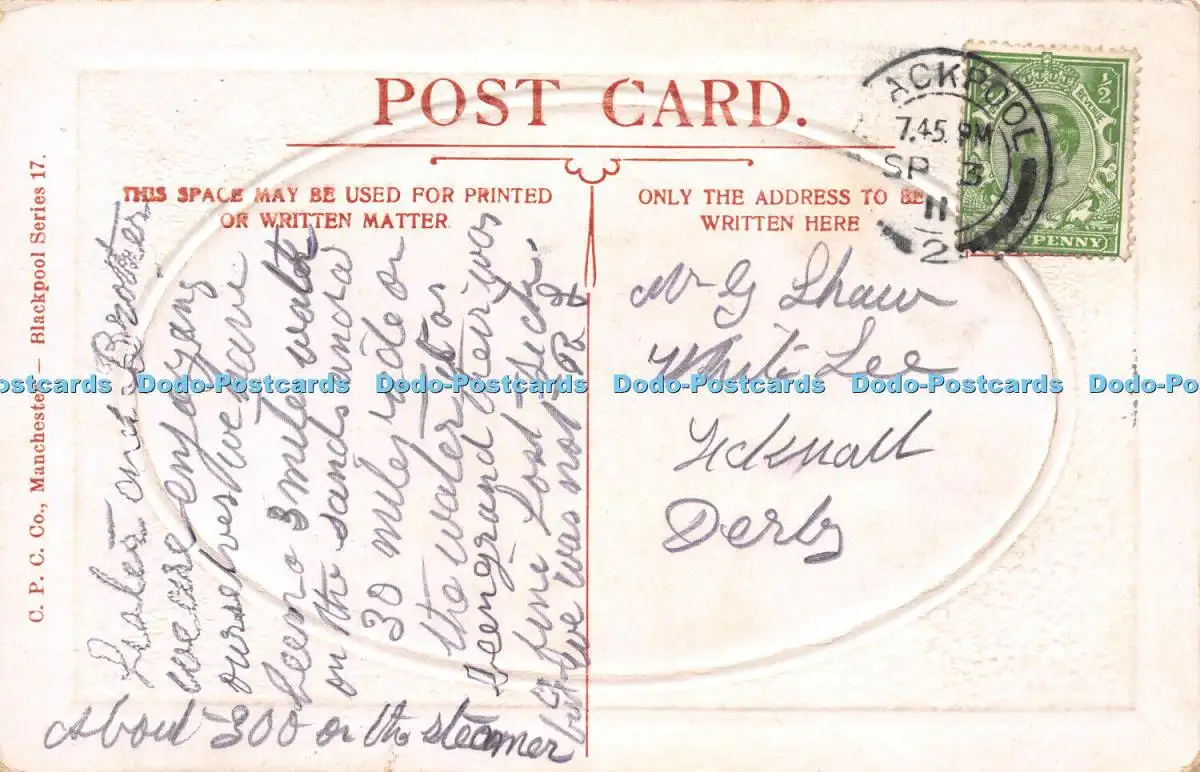 POST CARD.
THIS SPACE MAY BE USED FOR PRINTED
OR WRITTEN MATTER
ONLY THE ADDRESS TO BE
WRITTEN HERE
ACKPOOL
7.45. PM
SP 3
11
2
REVENUE
½
PENNY
C. P. C. Co., Manchester — Blackpool Series 17.
Mr G Shaw
White Lee
Ticknall
Derby
Sister and Brother
we are enjoying
ourselves we have
been a 3 mile walk
on the sands and a
30 miles ride on
the water it as
been grand Jenny was
fine Lost sick
but we was not R S
About 300 on the steamer
Dodo-Postcards Dodo-Postcards Dodo-Postcards Dodo-Postcards Dodo-Postcards Dodo-Po